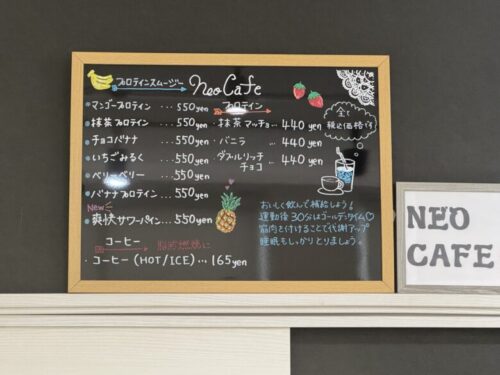 プロテインスムージー
Neo Cafe
マンゴープロテイン ... 550yen
抹茶プロテイン ... 550yen
チョコバナナ ... 550yen
いちごみるく ... 550yen
ベリーベリー ... 550yen
バナナプロテイン ... 550yen
New
爽快サワーパイン ... 550yen
コーヒー
脂肪燃焼に
・コーヒー (HOT/ICE) ... 165yen
プロテイン
抹茶マッチョ ... 440 yen
バニラ ... 440 yen
ダブルリッチ
チョコ ... 440 yen
全て
税込価格です
おいしく飲んで補給しよう!
運動後30分はゴールデンタイム♡
筋肉を付けることで代謝アップ
睡眠もしっかりとりましょう
NEO
CAFE